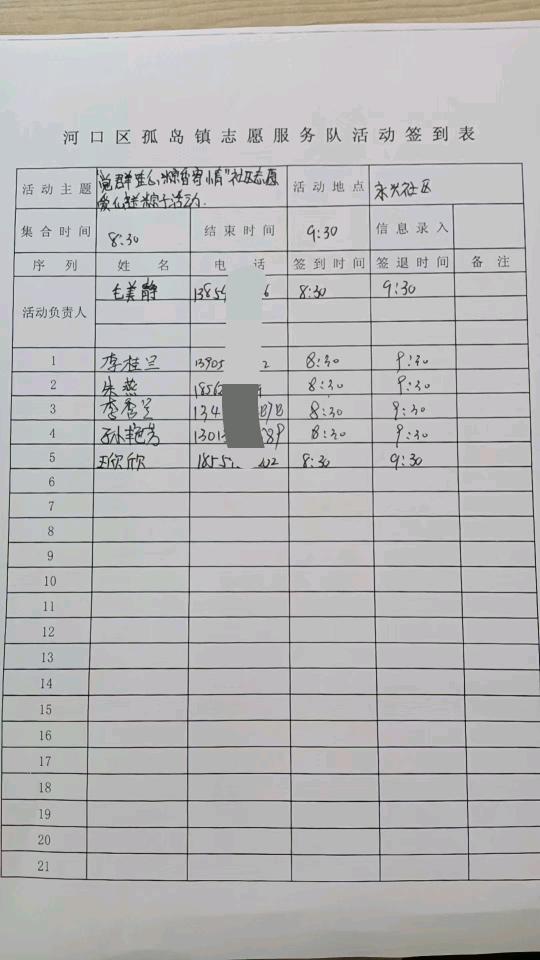 河口区孤岛镇志愿服务队活动签到表
活动主题 "党群连心粽香寄情"社区志愿 活动地点 永兴社区
爱心送粽子活动.
集合时间 8:30 结束时间 9:30 信息录入
序列 姓名 电话 签到时间 签退时间 备注
活动负责人 毛美静 1385 6 8:30 9:30
1 李桂兰 13905 2 8:30 9:30
2 朱燕 1856 8:30 9:30
3 李秀兰 134 8:30 9:30
4 孙艳芳 1301 89 8:30 9:30
5 王欣欣 1855 02 8:30 9:30
6
7
8
9
10
11
12
13
14
15
16
17
18
19
20
21